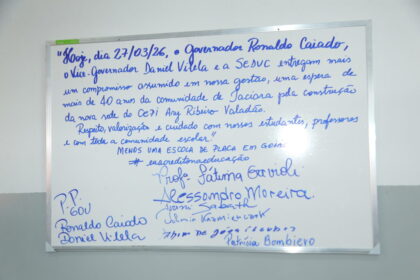 "Hoje, dia 27/03/26, o Governador Ronaldo Caiado,
o Vice-Governador Daniel Vilela e a SEDUC entregam mais
um compromisso assumido em nossa gestão, uma espera de
mais de 40 anos da comunidade de Jaciara pela construção
da nova sede do CEPI Ary Ribeiro Valadão.
Respeito, valorização e cuidado com nossos estudantes, professores
e com toda a comunidade escolar."
MENOS UMA ESCOLA DE PLACA EM GOIÁS
#euacreditonaeducação
Profa Fátima Gavioli
Alessandro Moreira
P.P.
GOV
Ronaldo Caiado
Daniel Vilela
Patrícia Bombeiro